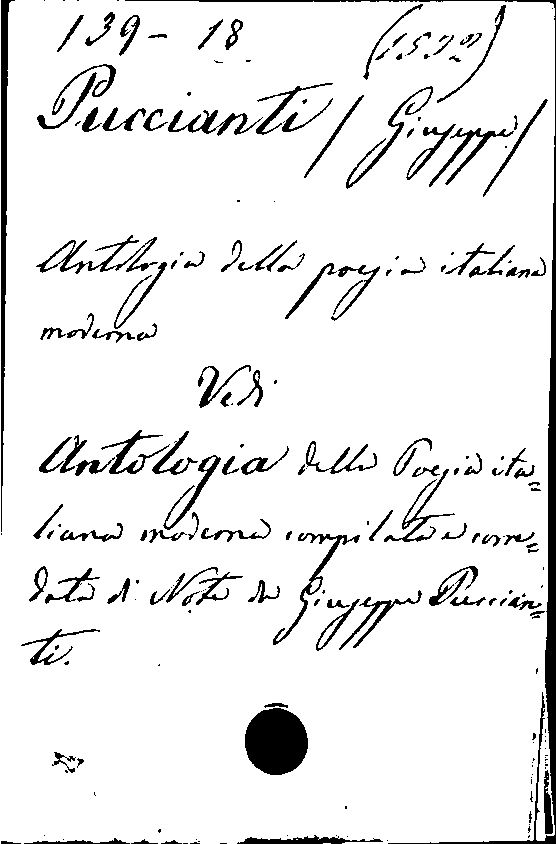 139-18. (1522)
Puccianti / Giuseppe /
Antologia della poesia italiana
moderna
Vedi
Antologia della Poesia ita=
liana moderna compilata e corre=
data di Note da Giuseppe Puccian=
ti.